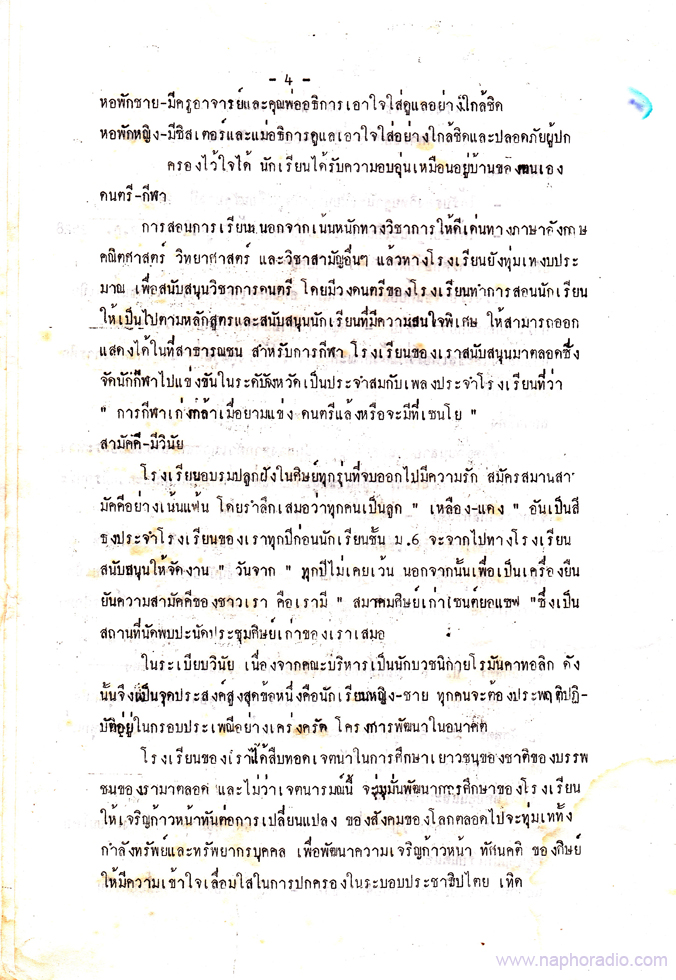 - 4 -
หอพักชาย-มีครูอาจารย์และคุณพ่ออธิการเอาใจใส่ดูแลอย่างใกล้ชิด
หอพักหญิง-มีซิสเตอร์และแม่อธิการดูแลเอาใจใส่อย่างใกล้ชิดและปลอดภัยผู้ปก
ครองไว้ใจได้ นักเรียนได้รับความอบอุ่นเหมือนอยู่บ้านของตนเอง
ดนตรี-กีฬา
การสอนการเรียนนอกจากเน้นหนักทางวิชาการให้ดีเด่นทางภาษาอังกฤษ
คณิตศาสตร์ วิทยาศาสตร์ และวิชาสามัญอื่นๆ แล้วทางโรงเรียนยังทุ่มเทงบประ
มาณ เพื่อสนับสนุนวิชาการดนตรี โดยมีวงดนตรีของโรงเรียนทำการสอนนักเรียน
ให้เป็นไปตามหลักสูตรและสนับสนุนนักเรียนที่มีความสนใจพิเศษ ให้สามารถออก
แสดงได้ในที่สาธารณชน สำหรับการกีฬา โรงเรียนของเราสนับสนุนมาตลอดซึ่ง
จัดนักกีฬาไปแข่งขันในระดับจังหวัดเป็นประจำสมกับเพลงประจำโรงเรียนที่ว่า
" การกีฬาเก่งกล้าเมื่อยามแข่ง ดนตรีแล้งหรือจะมีที่เซนโย "
สามัคคี-มีวินัย
โรงเรียนอบรมปลูกฝังในศิษย์ทุกรุ่นที่จบออกไปมีความรัก สมัครสมานสา
มัคคีอย่างเน้นแฟ้น โดยรำลึกเสมอว่าทุกคนเป็นลูก " เหลือง-แดง " อันเป็นสี
ธงประจำโรงเรียนของเราทุกปีก่อนนักเรียนชั้น ม.6 จะจากไปทางโรงเรียน
สนับสนุนให้จัดงาน " วันจาก " ทุกปีไม่เคยเว้น นอกจากนั้นเพื่อเป็นเครื่องยืน
ยันความสามัคคีของชาวเรา คือเรามี " สมาคมศิษย์เก่าเซนต์ยอแซฟ "ซึ่งเป็น
สถานที่นัดพบปะนัดประชุมศิษย์เก่าของเราเสมอ
ในระเบียบวินัย เนื่องจากคณะบริหารเป็นนักบวชนิกายโรมันคาทอลิก ดัง
นั้นจึงเป็นจุดประสงค์สูงสุดข้อหนึ่งคือนักเรียนหญิง-ชาย ทุกคนจะต้องประพฤติปฏิ-
บัติอยู่ในกรอบประเพณีอย่างเคร่งครัด โครงการพัฒนาในอนาคต
โรงเรียนของเราได้สืบทอดเจตนาในการศึกษาเยาวชนของชาติของบรรพ
ชนของเรามาตลอด และไม่ว่าเจตนารมณ์นี้ จะมุ่งมั่นพัฒนาการศึกษาของโรงเรียน
ให้เจริญก้าวหน้าทันต่อการเปลี่ยนแปลง ของสังคมของโลกตลอดไปจะทุ่มเททั้ง
กำลังทรัพย์และทรัพยากรบุคคล เพื่อพัฒนาความเจริญก้าวหน้า ทัศนคติ ของศิษย์
ให้มีความเข้าใจเลื่อมใสในการปกครองในระบอบประชาธิปไตย เทิด
www.naphoradio.com